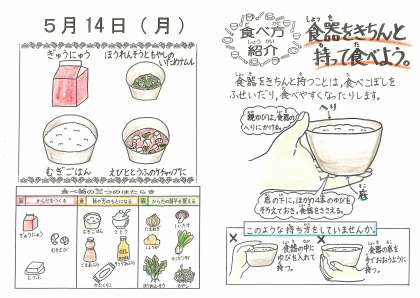 5月14日（月）
ぎゅうにゅう
ほうれんそうともやしの
いためナムル
むぎごはん
えびととうふのケチャップに
食べ物の三つのはたらき
からだをつくる
熱や力のもとになる
からだの調子を整える
ぎゅうにゅう
むぎごはん
さとう
食べ方
しょうかい
紹介
食器をきちんと
持って食べよう。
食器をきちんと持つことは、食べこぼしを
ふせいだり、食べやすくなったりします。
親ゆびは、食器の
へりにかける。
へり
底の下に、ほかの4本のゆびを
そろえておき、食器をささえる。
このような持ち方をしていませんか。
×
食器の中に
ゆびを入れて
持つ。
×
食器の底を
手でおおうように
持つ。